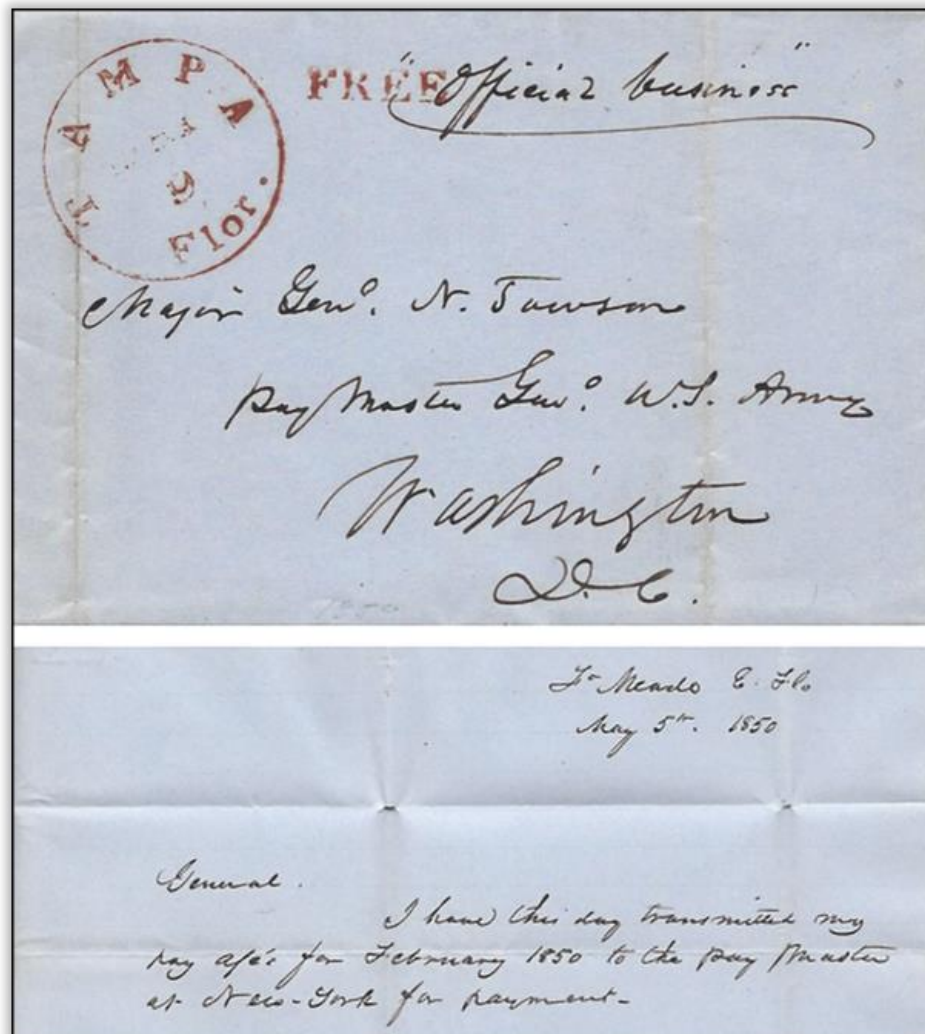 TAMPA
9
Flor.
FREE
"Official business"
Major Genl. N. Towson
Pay Master Genl. U.S. Army
Washington
D.C.
Ft Meade E. Flo
May 5th. 1850
General.
I have this day transmitted my
pay a/cs for February 1850 to the Pay Master
at New-York for payment-